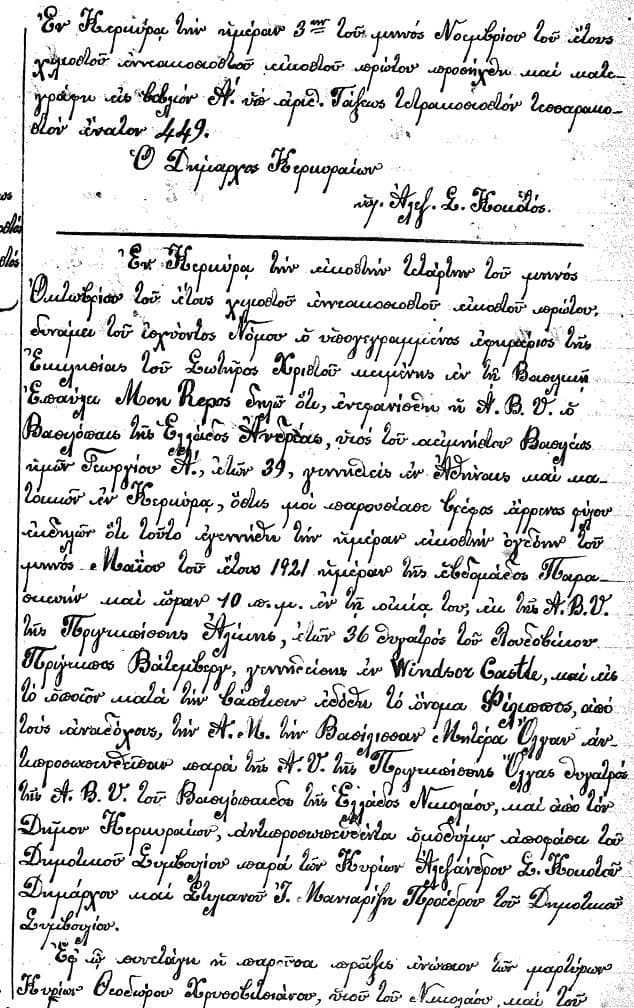 Ἐν Κερκύρᾳ τὴν ἡμέραν 3ην τοῦ μηνὸς Νοεμβρίου τοῦ ἔτους
χιλιοστοῦ ἐννεακοσιοστοῦ εἰκοστοῦ πρώτου προσήχθη καὶ κατε-
γράφη εἰς βιβλίον Α΄. ὑπ' ἀριθ. Τάξεως τετρακοσιοστὸν τεσσαρακο-
στὸν ἔνατον 449.
Ὁ Δήμαρχος Κερκυραίων
ὑπ. Ἀλεξ. Σ. Κοκοτός.
Ἐν Κερκύρᾳ τὴν εἰκοστὴν τετάρτην τοῦ μηνὸς
Ὀκτωβρίου τοῦ ἔτους χιλιοστοῦ ἐννεακοσιοστοῦ εἰκοστοῦ πρώτου,
δυνάμει τοῦ ἰσχύοντος Νόμου ὁ ὑπογεγραμμένος ἐφημέριος τῆς
Ἐκκλησίας τοῦ Σωτῆρος Χριστοῦ κειμένης ἐν τῇ Βασιλικῇ
Ἐπαύλει Mon Repos δηλῶ ὅτι, ἐνεφανίσθη ἡ Α. Β. Υ. ὁ
Βασιλόπαις τῆς Ἑλλάδος Ἀνδρέας, υἱὸς τοῦ ἀειμνήστου Βασιλέως
ἡμῶν Γεωργίου Α΄., ἐτῶν 39, γεννηθεὶς ἐν Ἀθήναις καὶ κα-
τοικῶν ἐν Κερκύρᾳ, ὅστις μοὶ παρουσίασε βρέφος ἄρρενος φύλου
ἐκδηλῶν ὅτι τοῦτο ἐγεννήθη τὴν ἡμέραν εἰκοστὴν ὀγδόην τοῦ
μηνὸς Μαΐου τοῦ ἔτους 1921 ἡμέραν τῆς ἑβδομάδος Παρα-
σκευὴν καὶ ὥραν 10 π.μ. ἐν τῇ οἰκίᾳ του, ἐκ τῆς Α.Β.Υ.
τῆς Πριγκιπίσσης Ἀλίκης, ἐτῶν 36 θυγατρὸς τοῦ Λουδοβίκου
Πρίγκιπος Βάτεμβεργ, γεννηθείσης ἐν Windsor Castle, καὶ εἰς
τὸ ὁποῖον κατὰ τὴν βάπτισιν ἐδόθη τὸ ὄνομα Φίλιππος, ἀπὸ
τοὺς ἀναδόχους, τὴν Α. Μ. τὴν Βασίλισσαν Μητέρα Ὄλγαν ἀν-
τιπροσωπευθεῖσαν παρὰ τῆς Α.Υ. τῆς Πριγκιπίσσης Ὄλγας θυγατρὸς
τῆς Α. Β. Υ. τοῦ Βασιλόπαιδος τῆς Ἑλλάδος Νικολάου, καὶ ἀπὸ τὸν
Δῆμον Κερκυραίων, ἀντιπροσωπευθέντα ὁμοθύμῳ ἀποφάσει τοῦ
Δημοτικοῦ Συμβουλίου παρὰ τῶν Κυρίων Ἀλεξάνδρου Σ. Κοκοτοῦ
Δημάρχου καὶ Στυλιανοῦ Ἰ. Μανιαρίζη Προέδρου τοῦ Δημοτικοῦ
Συμβουλίου.
Ἐφ' ᾧ συνετάγη ἡ παροῦσα πρᾶξις ἐνώπιον τῶν μαρτύρων
Κυρίων Θεοδώρου Χρυσοβιτσιάνου, υἱοῦ τοῦ Νικολάου, καὶ τοῦ